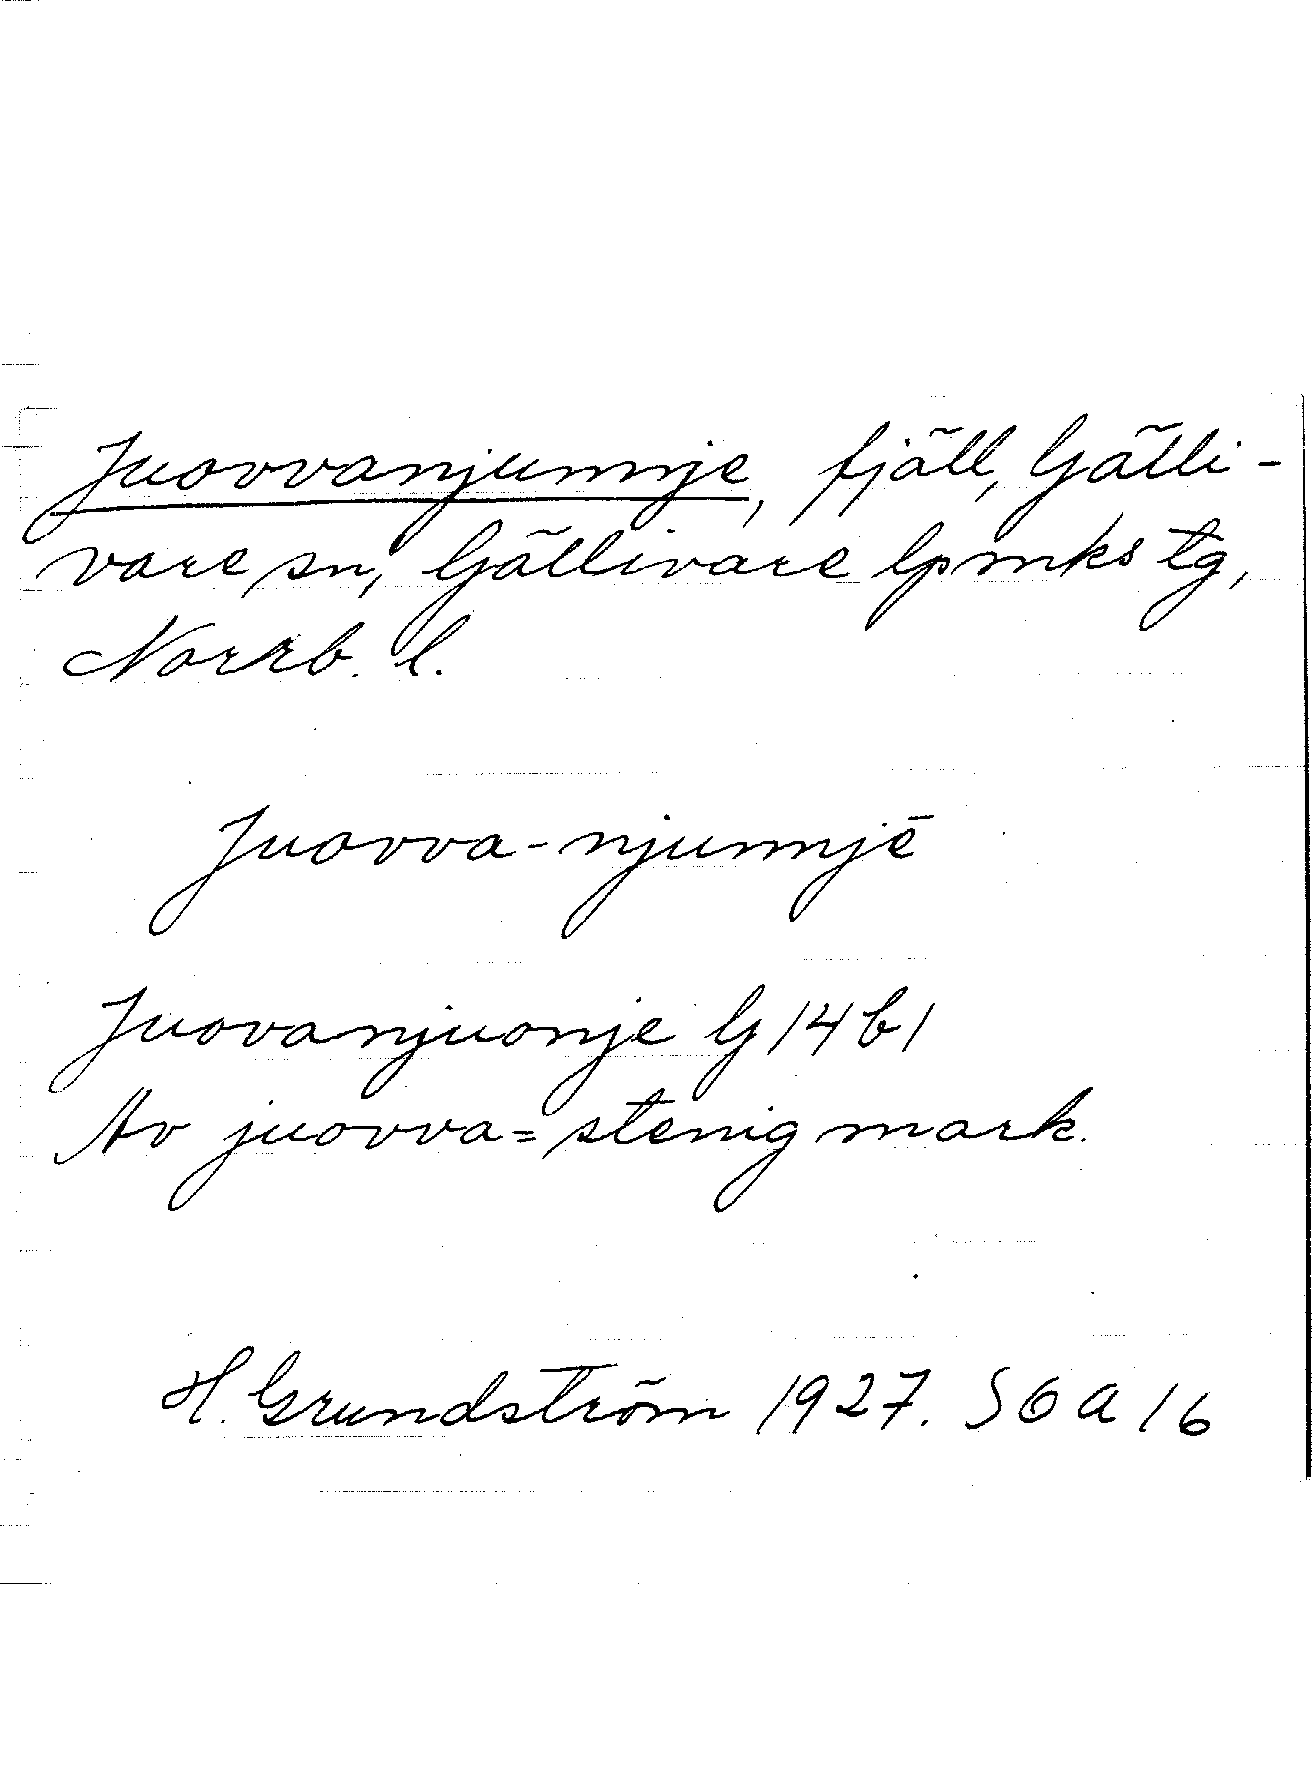 Juovvanjunnje, fjäll, Gälli-
vare sn, Gällivare lpmks tg,
Norrb. l.
Juovva-njunnjē
Juovanjuonje G 14 b 1
Av juovva = stenig mark.
H. Grundström 1927. S 6 a 16